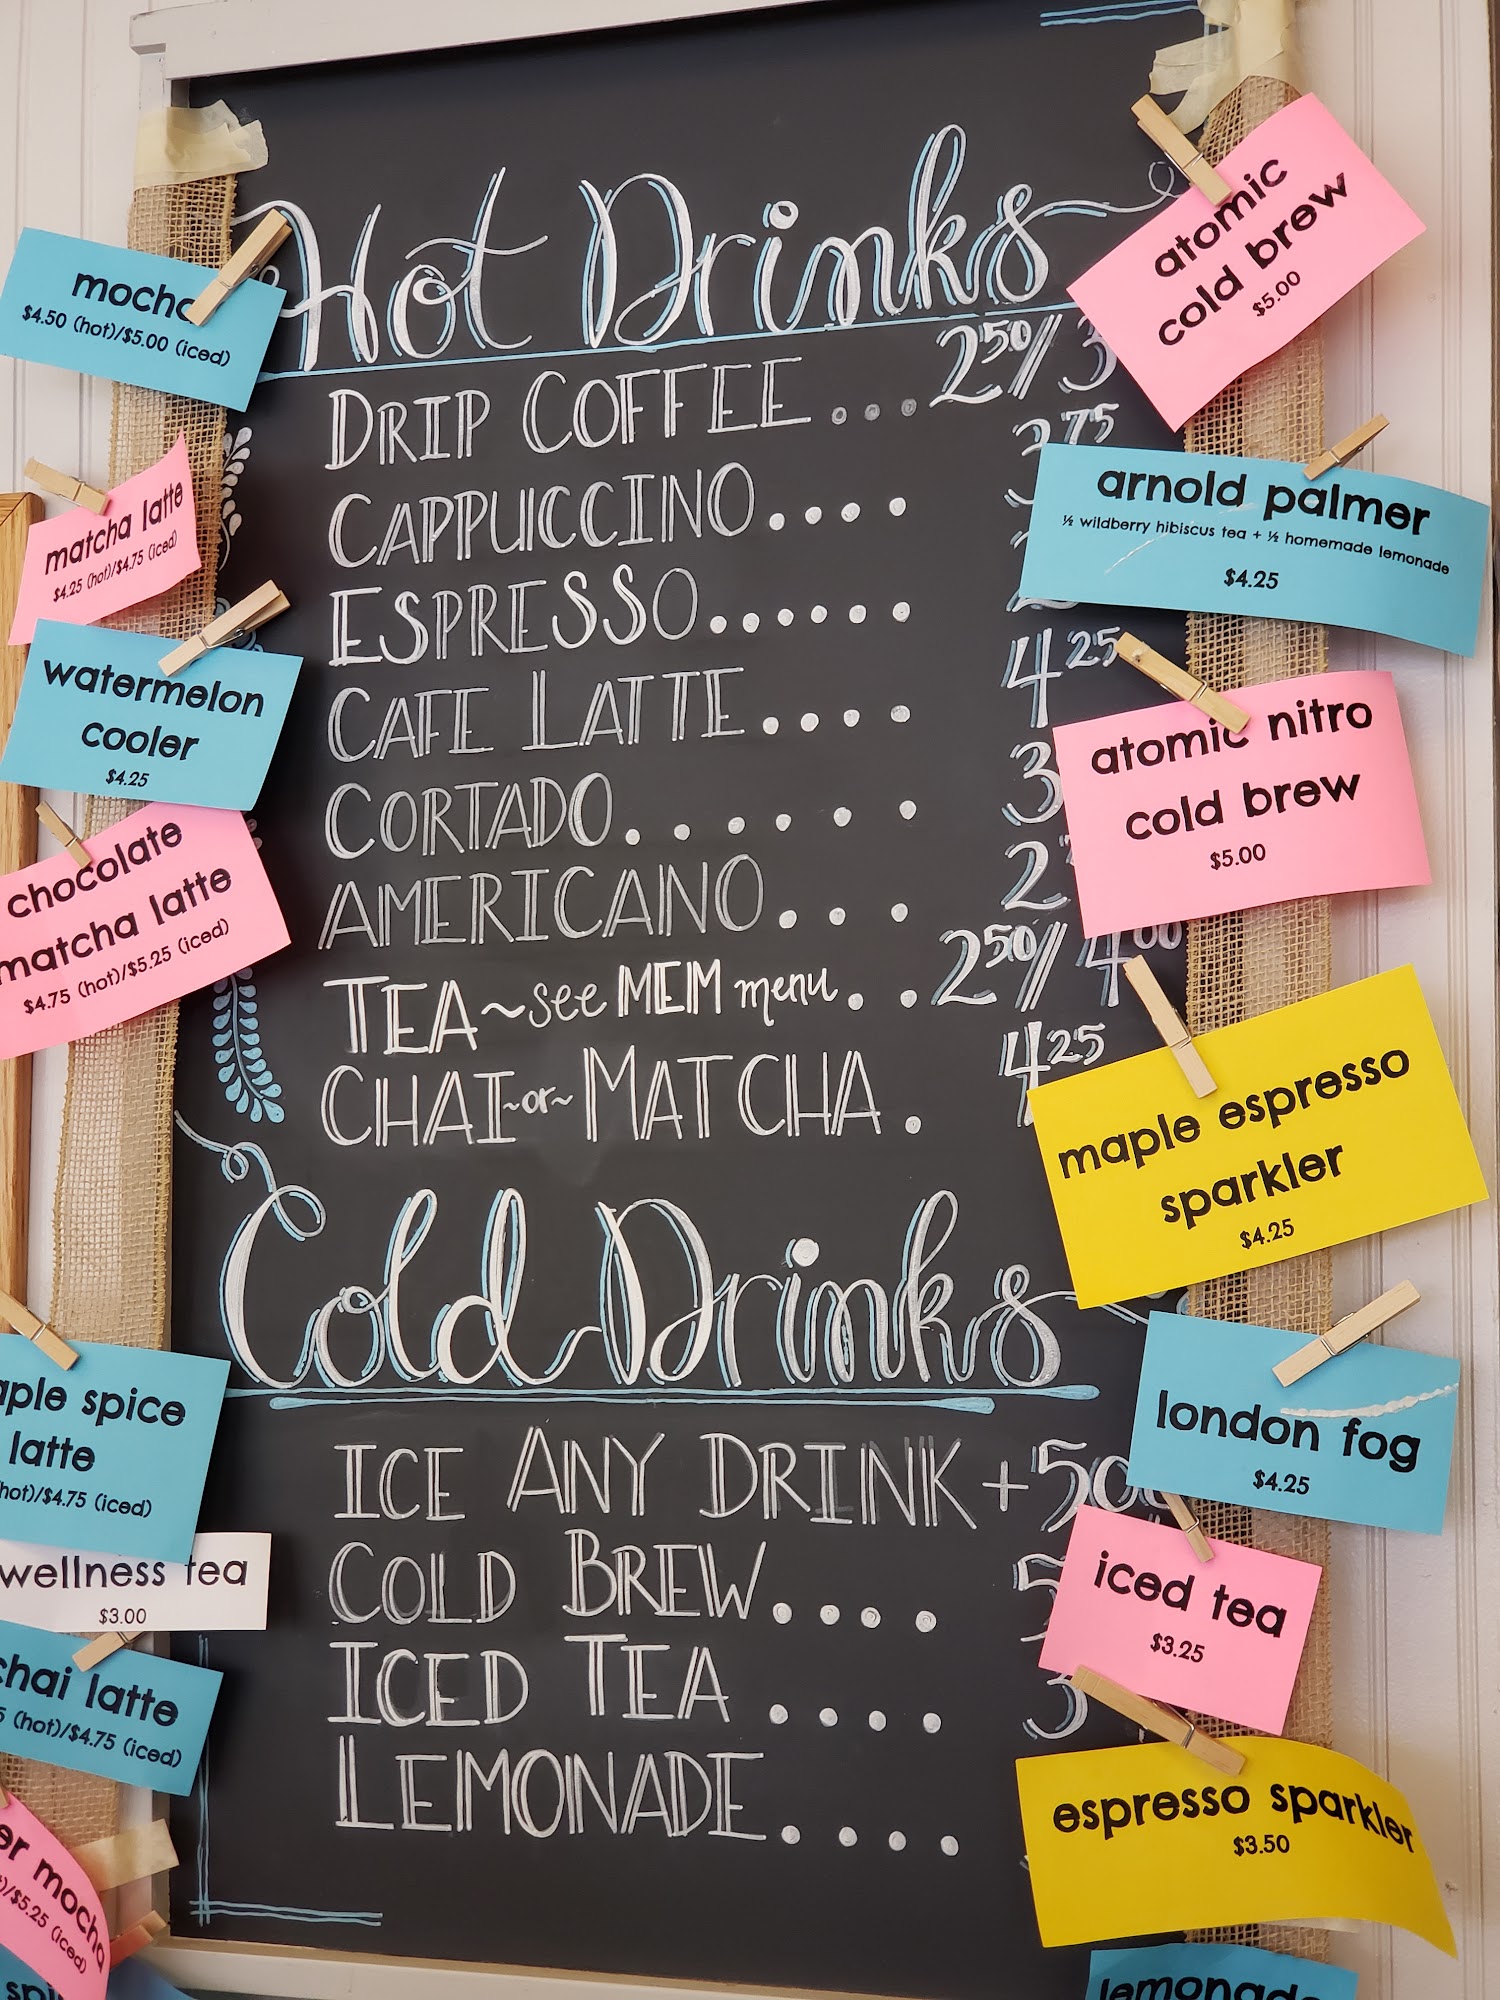 Hot Drinks
DRIP COFFEE... 2 50/ 3
CAPPUCCINO.... 3 75
ESPRESSO......
CAFE LATTE.... 4 25
CORTADO...... 3
AMERICANO.... 2
TEA~see MEM menu... 2 50/ 4 00
CHAI ~or~ MATCHA. 4 25
Cold Drinks
ICE ANY DRINK +50
COLD BREW.... 5
ICED TEA.... 3
LEMONADE....
mocha
$4.50 (hot)/$5.00 (iced)
matcha latte
$4.25 (hot)/$4.75 (iced)
watermelon
cooler
$4.25
chocolate
matcha latte
$4.75 (hot)/$5.25 (iced)
spice
latte
(hot)/$4.75 (iced)
wellness tea
$3.00
chai latte
(hot)/$4.75 (iced)
mocha
/$5.25 (iced)
atomic
cold brew
$5.00
arnold palmer
½ wildberry hibiscus tea + ½ homemade lemonade
$4.25
atomic nitro
cold brew
$5.00
maple espresso
sparkler
$4.25
london fog
$4.25
iced tea
$3.25
espresso sparkler
$3.50
lemonade